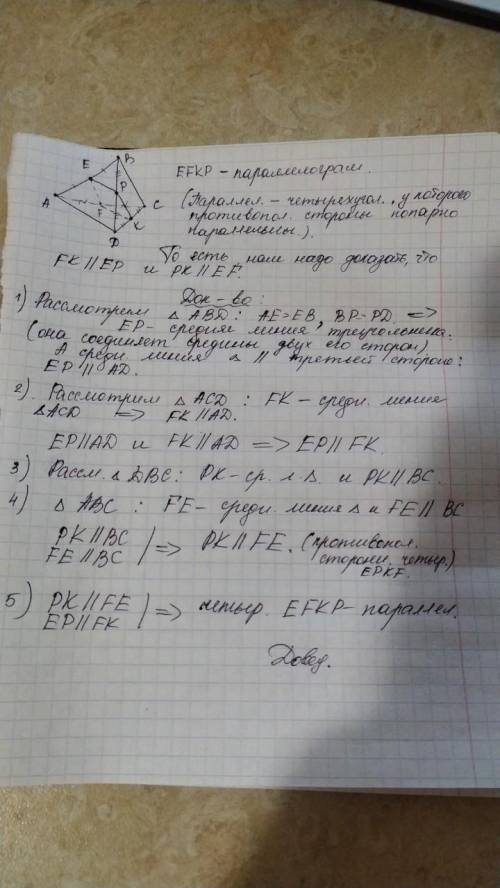 B
E
P
A
F
C
K
D
EFKP – параллелограм.
(Параллел. – четырехугол., у которого
противопол. стороны попарно
параллельны.).
То есть нам надо доказать, что
FK || EP и PK || EF.
Док-во:
1) Рассмотрим △ ABD: AE=EB, BP=PD. =>
EP – средняя линия треугольника.
(она соединяет средины двух его сторон)
А средн. линия △ || третьей стороне:
EP || AD.
2). Рассмотрим △ ACD : FK – средн. линия
△ACD => FK || AD.
EP||AD и FK||AD => EP||FK.
3) Рассм. △ DBC: PK – ср. л △. и PK || BC.
4) △ ABC : FE – средн. линия △ и FE || BC
PK||BC
FE||BC | => PK || FE. (противопол.
сторони. четыр.)
EPKF.
5) PK||FE
EP||FK | => четыр. EFKP – параллел.
Довед.